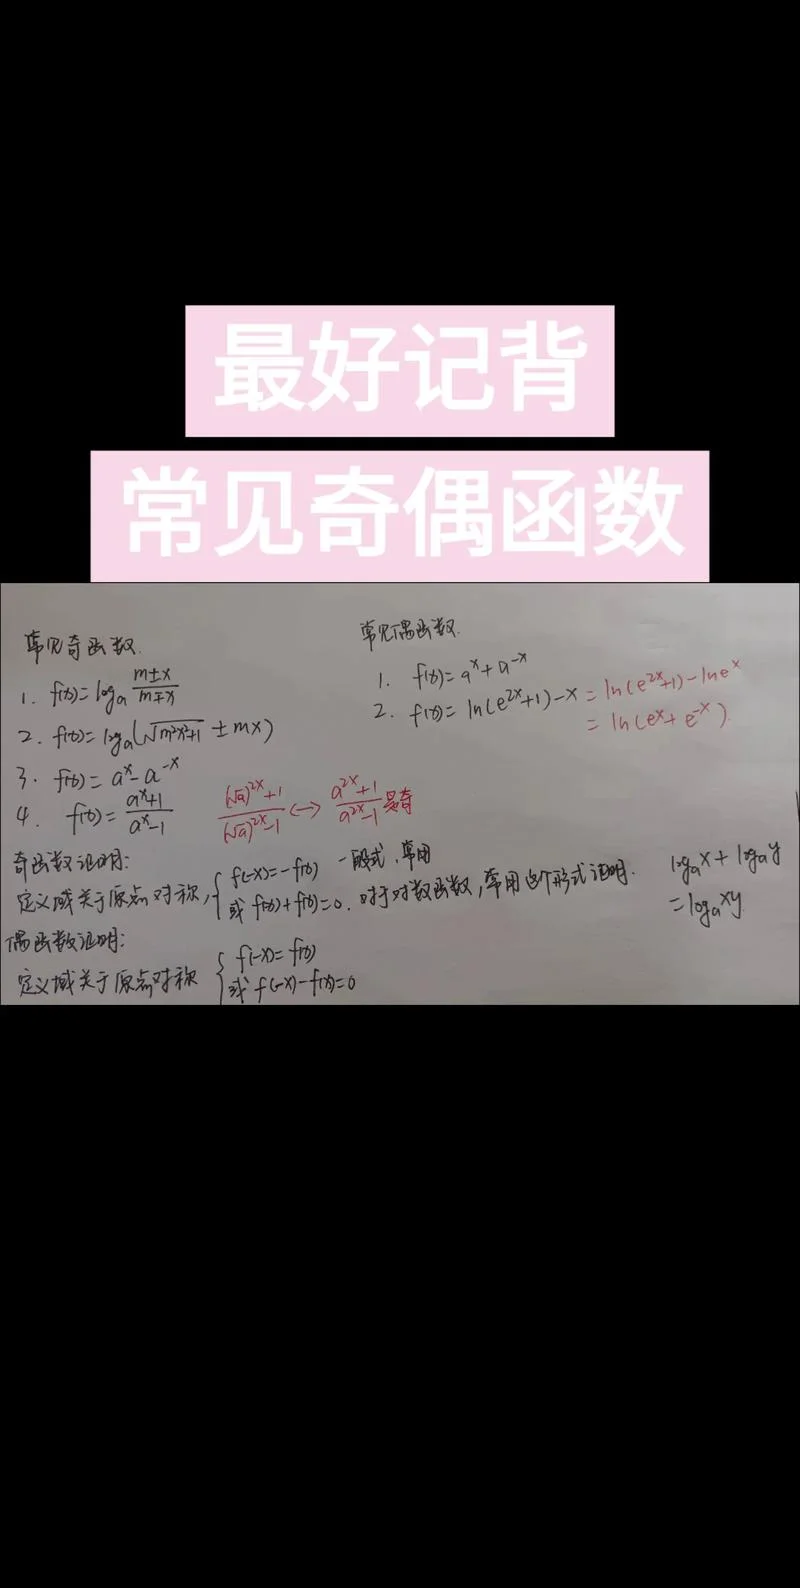 最好记背
常见奇偶函数
常见奇函数.
1. f(x)=logₐ (m±x)/(m∓x)
2. f(x)=logₐ(√(m²x²+1) ± mx)
3. f(x)=aˣ-a⁻ˣ
4. f(x)=(aˣ+1)/(aˣ-1) ((√a)²ˣ+1)/((√a)²ˣ-1) ↔ (a²ˣ+1)/(a²ˣ-1) 是奇
常见偶函数.
1. f(x)=aˣ+a⁻ˣ
2. f(x)=ln(e²ˣ+1)-x = ln(e²ˣ+1)-lneˣ
= ln(eˣ+e⁻ˣ).
奇函数证明:
定义域关于原点对称, { f(-x)=-f(x) 一般式,常用
或 f(x)+f(x)=0. 对于对数函数,常用这个形式证明.
logₐx+logₐy
=logₐxy.
偶函数证明:
定义域关于原点对称 { f(-x)=f(x)
或 f(-x)-f(x)=0